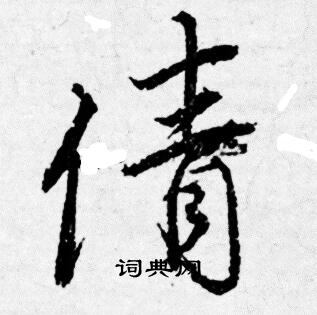 倩
词典网